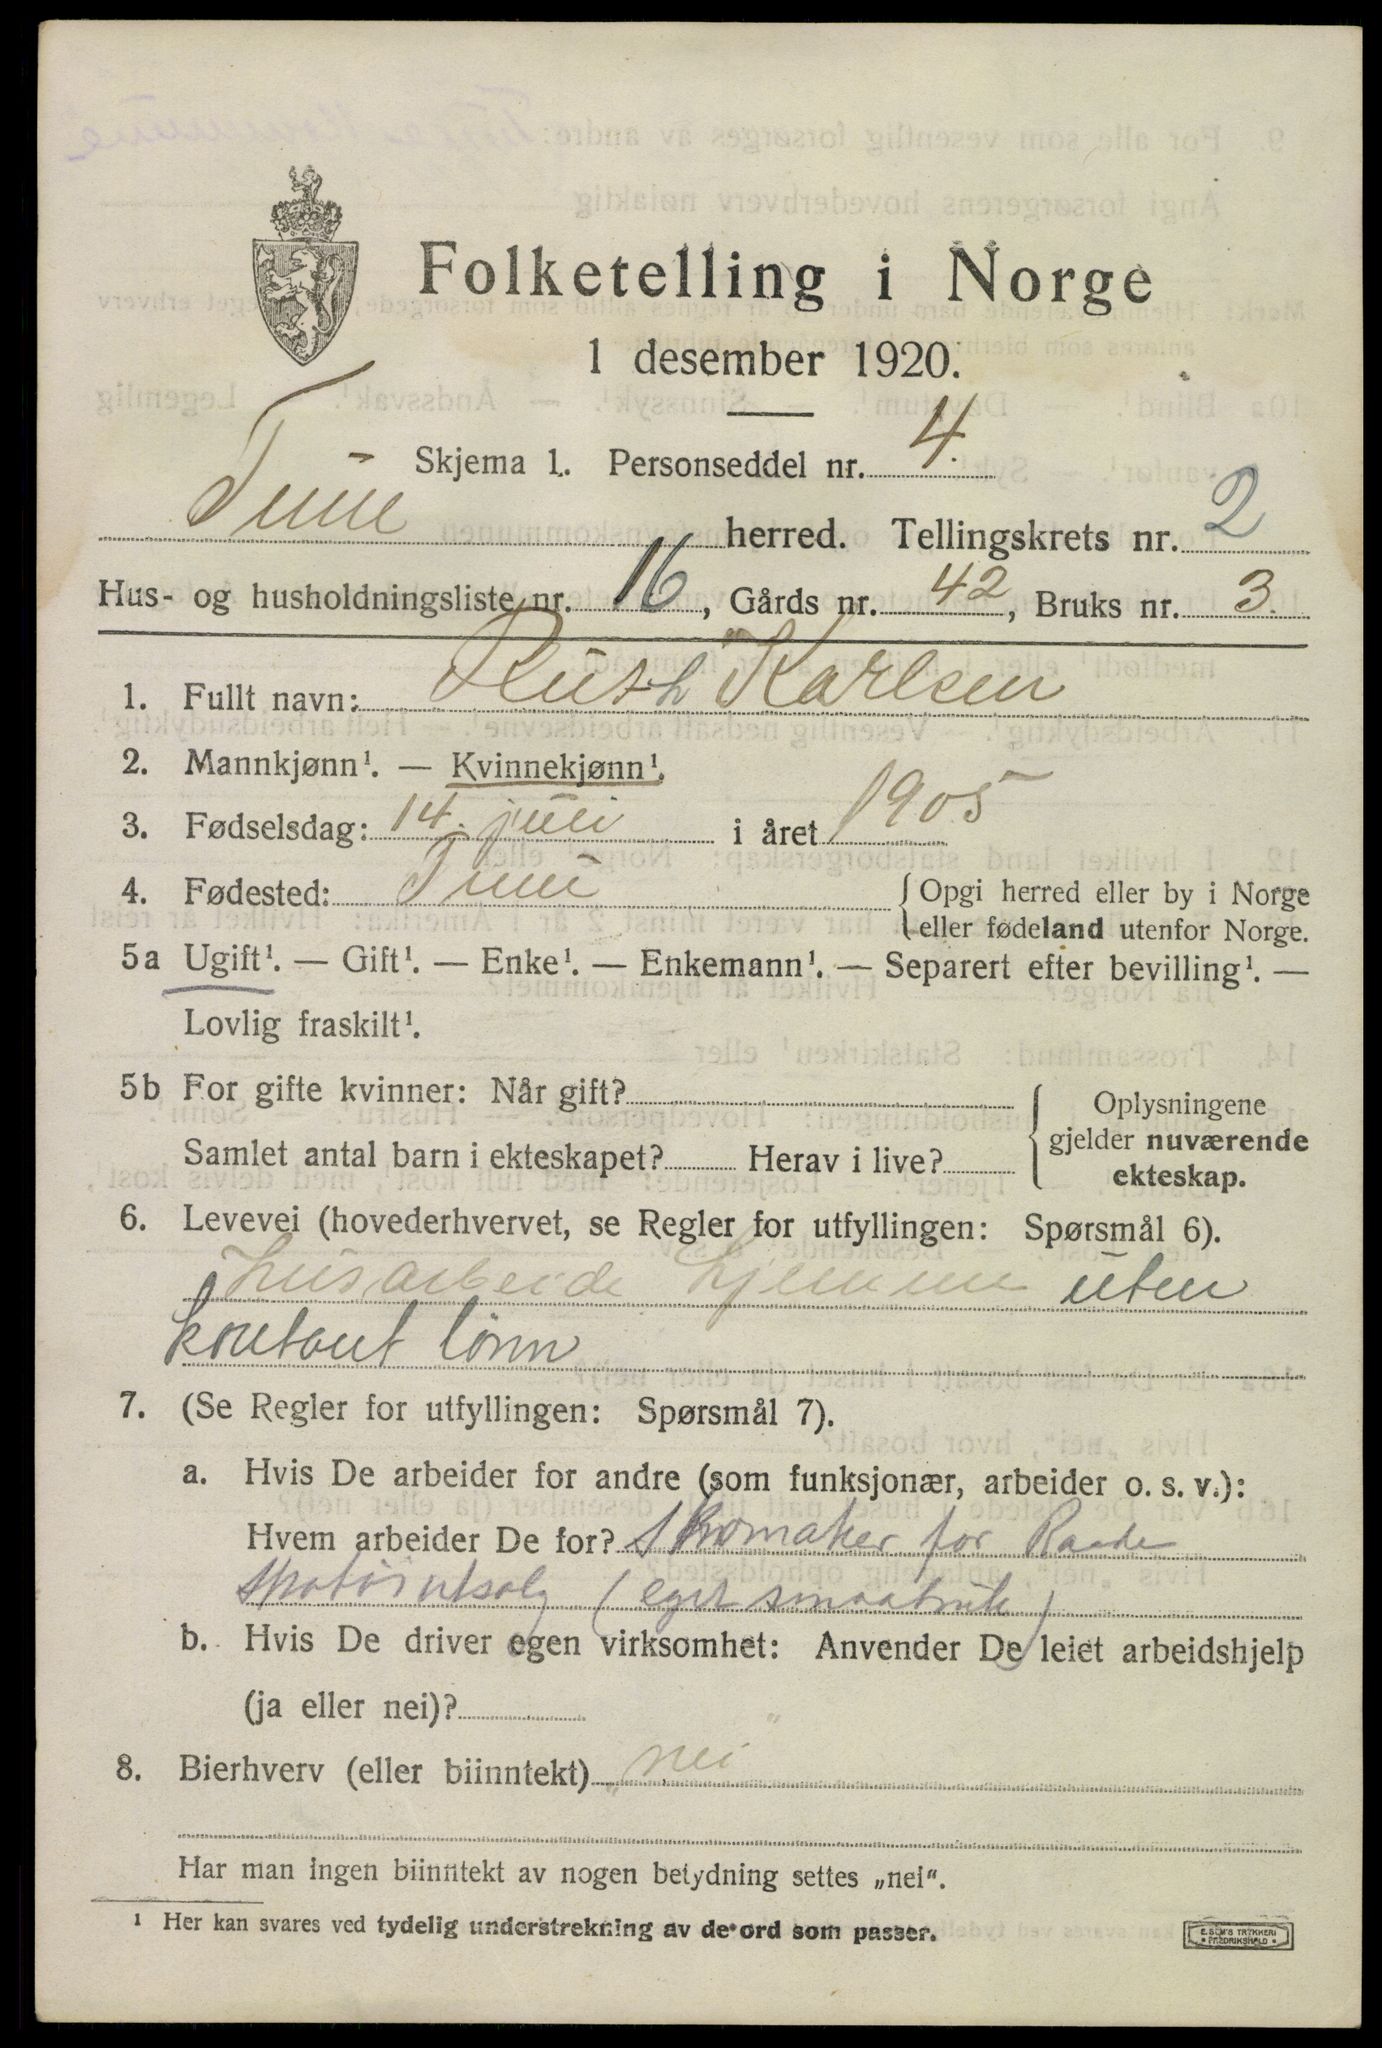 Folketelling i Norge
1 desember 1920.
Skjema 1. Personseddel nr. 4.
Tune herred. Tellingskrets nr. 2
Hus- og husholdningsliste nr. 16, Gårds nr. 42, Bruks nr. 3.
1. Fullt navn: Ruth Karlsen
2. Mannkjønn¹. — Kvinnekjønn¹.
3. Fødselsdag: 14. juli i året 1905
4. Fødested: Tune {Opgi herred eller by i Norge
eller fødeland utenfor Norge.
5a Ugift¹. — Gift¹. — Enke¹. — Enkemann¹. — Separert efter bevilling¹. —
Lovlig fraskilt¹.
5b For gifte kvinner: Når gift? { Oplysningene
gjelder nuværende
Samlet antal barn i ekteskapet? Herav i live?
ekteskap.
6. Levevei (hovederhvervet, se Regler for utfyllingen: Spørsmål 6).
Husarbeide hjemme uten
kontant lønn
7. (Se Regler for utfyllingen: Spørsmål 7).
a. Hvis De arbeider for andre (som funksjonær, arbeider o. s. v.):
Hvem arbeider De for? Skomaker for Raade
skotøiutsalg (eget smaabruk)
b. Hvis De driver egen virksomhet: Anvender De leiet arbeidshjelp
(ja eller nei)?
8. Bierhverv (eller biinntekt) „nei"
Har man ingen biinntekt av nogen betydning settes „nei".
¹ Her kan svares ved tydelig understrekning av de ord som passer.
E. SEM'S TRYKKERI
FREDRIKSHALD